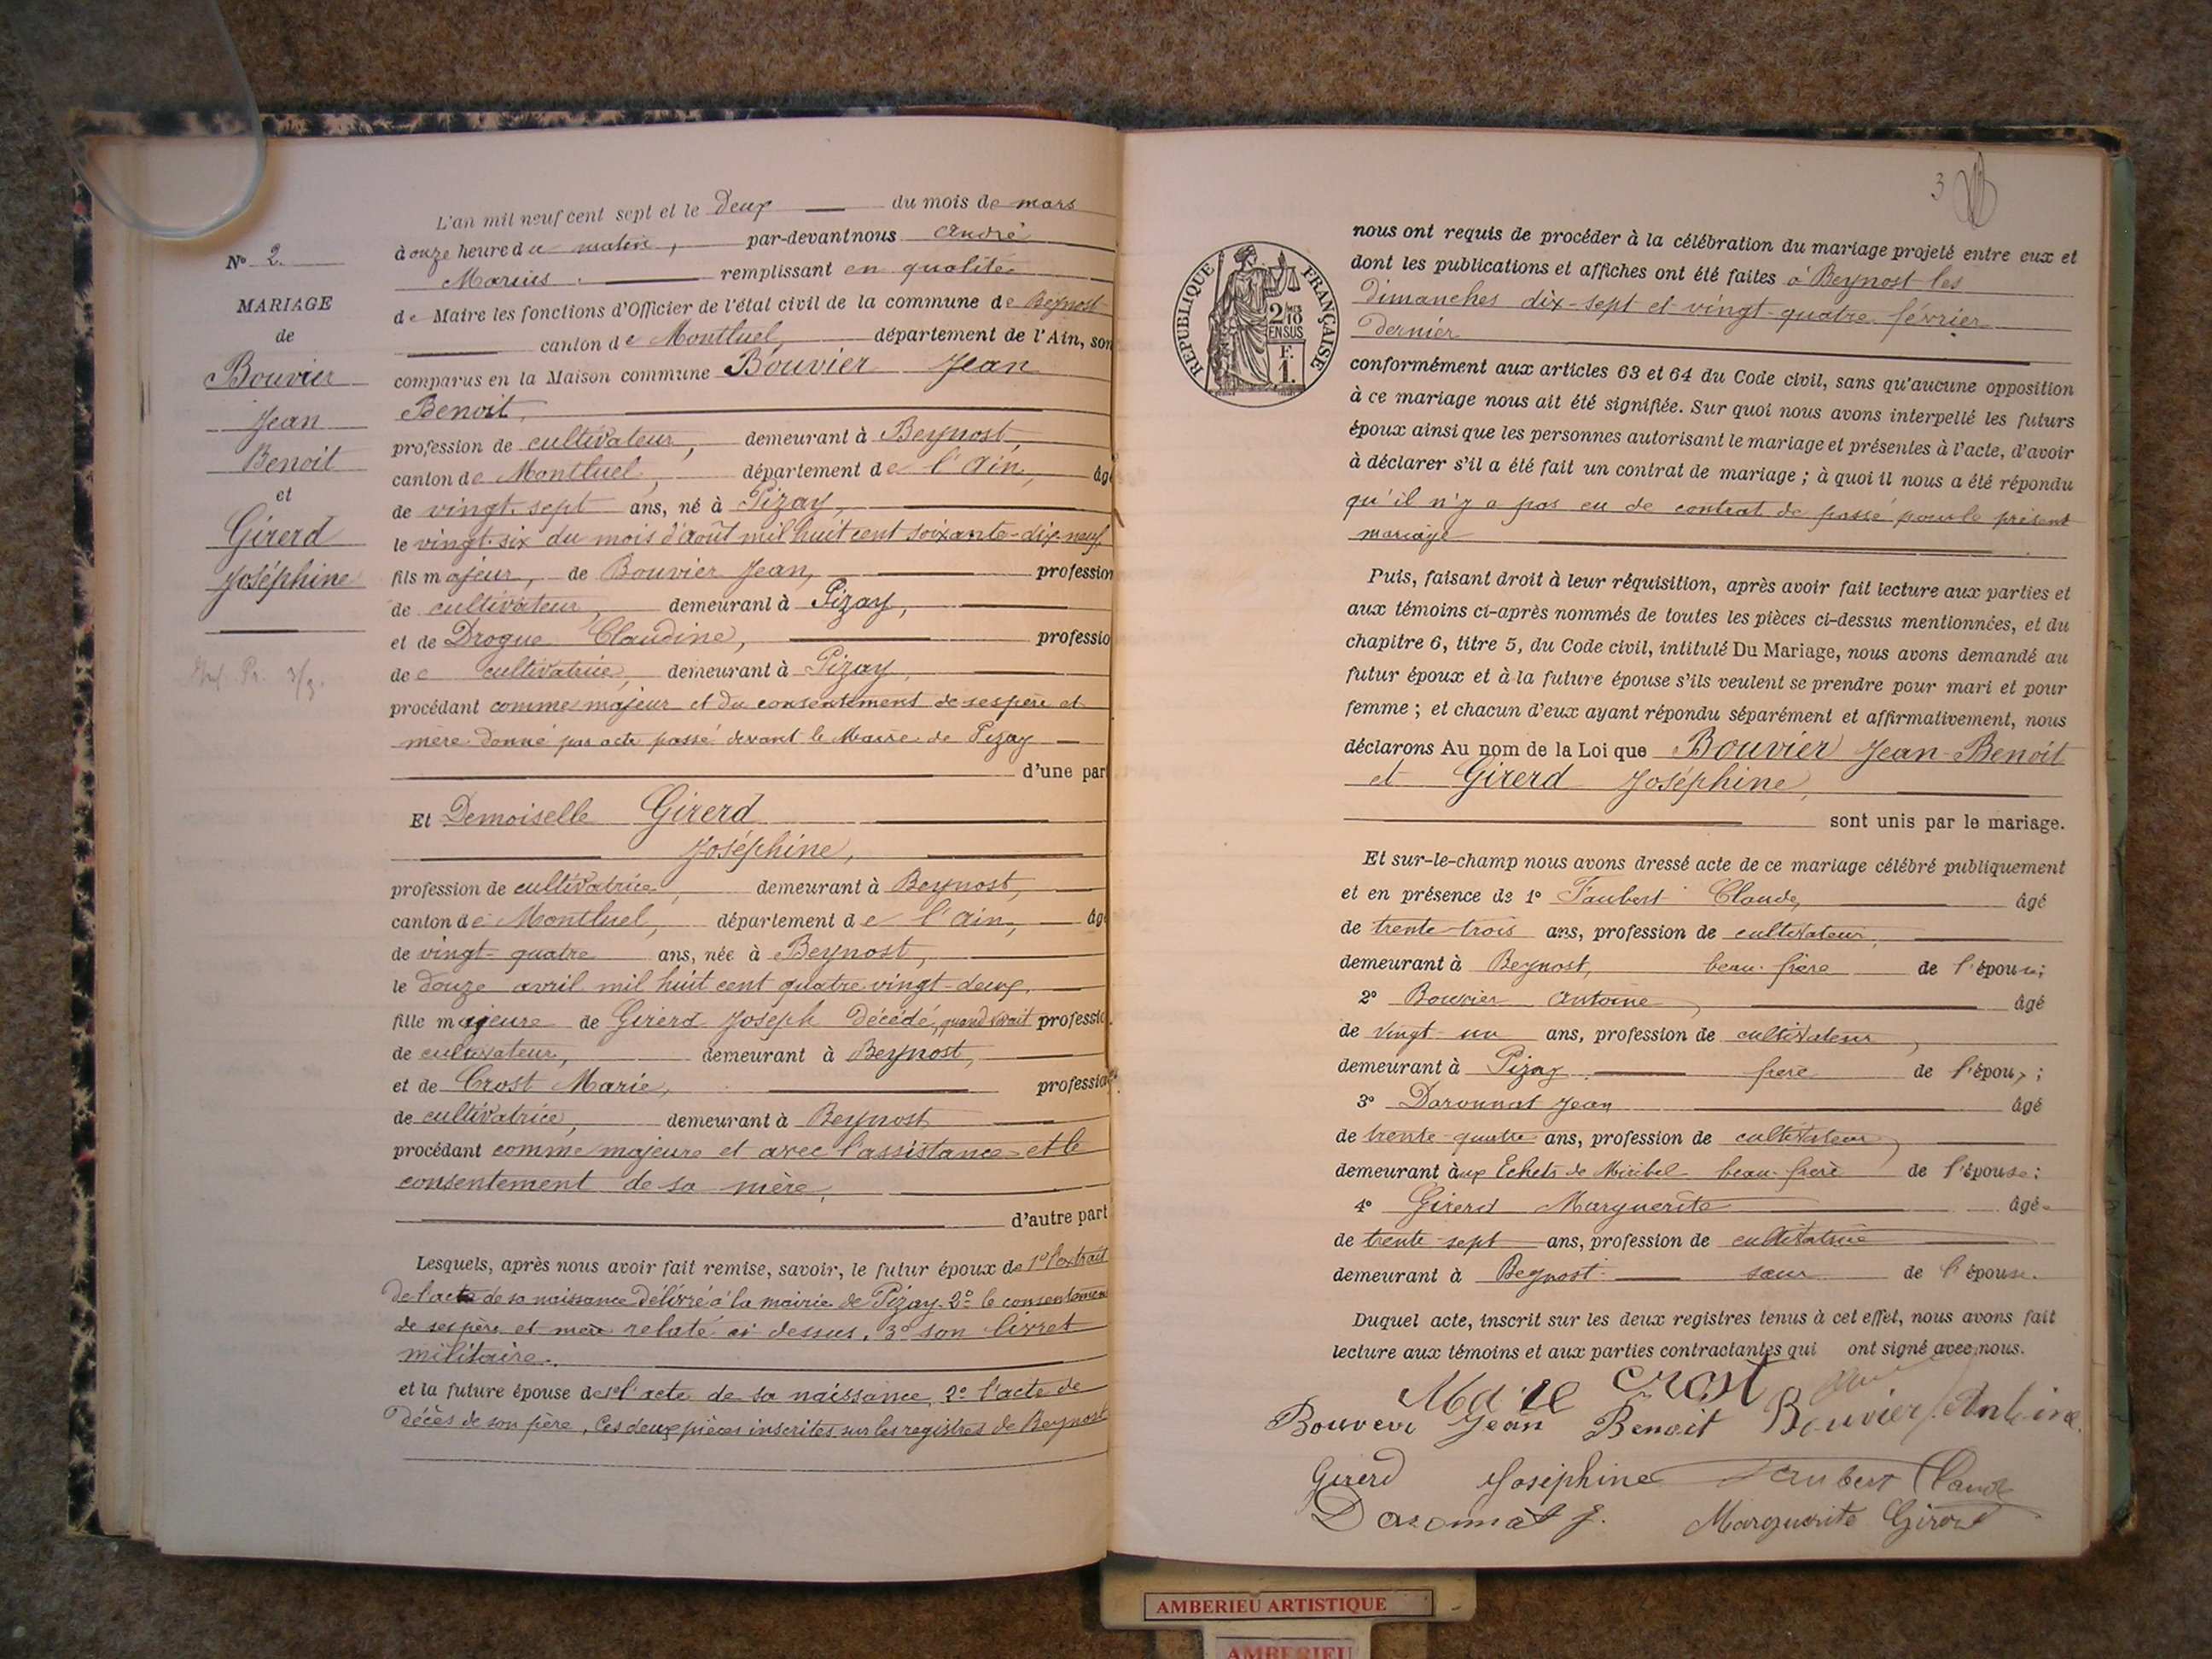 L'an mil neuf cent sept et le deux du mois de mars
à onze heure du matin, par-devant nous André
Marius remplissant en qualité
de Maire les fonctions d'Officier de l'état civil de la commune de Beynost
canton de Montluel, département de l'Ain, son
comparus en la Maison commune Bouvier Jean
Benoit,
profession de cultivateur, demeurant à Beynost,
canton de Montluel, département de l'Ain, âgé
de vingt-sept ans, né à Pizay,
le vingt-six du mois d'août mil huit cent soixante-dix-neuf
fils majeur, de Bouvier Jean, profession
de cultivateur, demeurant à Pizay,
et de Drogue Claudine, professio
de cultivatrice, demeurant à Pizay,
procédant comme majeur et du consentement de ses père et
mère donné par acte passé devant le Maire de Pizay
d'une part
Et Demoiselle Girerd
Joséphine,
profession de cultivatrice, demeurant à Beynost,
canton de Montluel, département de l'Ain, âgé
de vingt-quatre ans, née à Beynost,
le douze avril mil huit cent quatre vingt-deux,
fille majeure de Girerd Joseph décédé, quand vivait professio
de cultivateur, demeurant à Beynost,
et de Crost Marie, profession
de cultivatrice, demeurant à Beynost
procédant comme majeure et avec l'assistance et le
consentement de sa mère,
d'autre part
Lesquels, après nous avoir fait remise, savoir, le futur époux de 1° l'extrait
de l'acte de sa naissance délivré à la mairie de Pizay. 2° le consentement
de ses père et mère relaté ci dessus, 3° son livret
militaire.
et la future épouse de 1° l'acte de sa naissance, 2° l'acte de
décès de son père, Ces deux pièces inscrites sur les registres de Beynost
N° 2.
MARIAGE
de
Bouvier
Jean
Benoit
et
Girerd
Joséphine
3
RÉPUBLIQUE FRANÇAISE
2/10
EN SUS
F.
1.
nous ont requis de procéder à la célébration du mariage projeté entre eux et
dont les publications et affiches ont été faites à Beynost les
dimanches dix-sept et vingt-quatre février
dernier
conformément aux articles 63 et 64 du Code civil, sans qu'aucune opposition
à ce mariage nous ait été signifiée. Sur quoi nous avons interpellé les futurs
époux ainsi que les personnes autorisant le mariage et présentes à l'acte, d'avoir
à déclarer s'il a été fait un contrat de mariage ; à quoi il nous a été répondu
qu'il n'y a pas eu de contrat de passé pour le présent
mariage
Puis, faisant droit à leur réquisition, après avoir fait lecture aux parties et
aux témoins ci-après nommés de toutes les pièces ci-dessus mentionnées, et du
chapitre 6, titre 5, du Code civil, intitulé Du Mariage, nous avons demandé au
futur époux et à la future épouse s'ils veulent se prendre pour mari et pour
femme ; et chacun d'eux ayant répondu séparément et affirmativement, nous
déclarons Au nom de la Loi que Bouvier Jean-Benoit
et Girerd Joséphine,
sont unis par le mariage.
Et sur-le-champ nous avons dressé acte de ce mariage célébré publiquement
et en présence de 1° Faubert Claude, âgé
de trente-trois ans, profession de cultivateur,
demeurant à Beynost, beau-frère de l'épouse;
2° Bouvier Antoine, âgé
de vingt-un ans, profession de cultivateur,
demeurant à Pizay frère de l'époux;
3° Daronnat Jean âgé
de trente-quatre ans, profession de cultivateur,
demeurant aux Echets de Miribel beau-frère de l'épouse;
4° Girerd Marguerite âgée
de trente-sept ans, profession de cultivatrice
demeurant à Beynost sœur de l'épouse.
Duquel acte, inscrit sur les deux registres tenus à cet effet, nous avons fait
lecture aux témoins et aux parties contractantes qui ont signé avec nous.
Marie Crost
Bouvier Jean Benoit Bouvier Antoine
Girerd Joséphine Faubert Claude
Daronnat J. Marguerite Girerd
AMBERIEU ARTISTIQUE
AMBERIEU